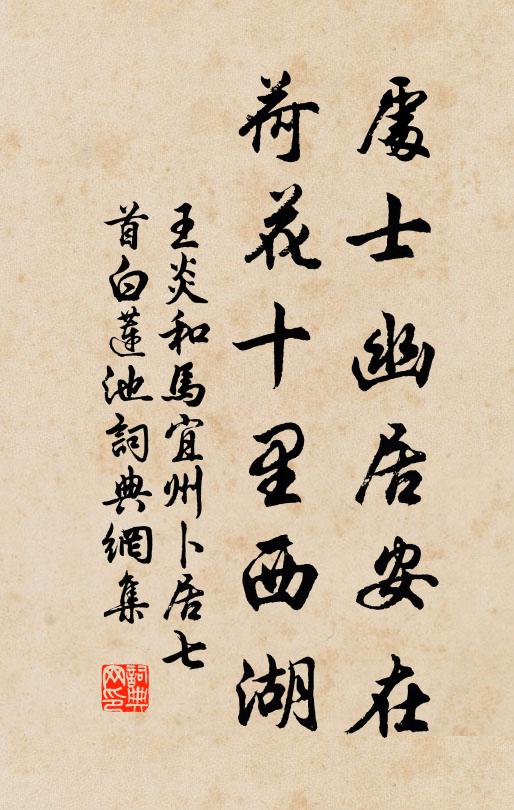 處士幽居安在
荷花十里西湖
王炎和馬宜州卜居七
首白蓮池詞典網集
詞典
网印